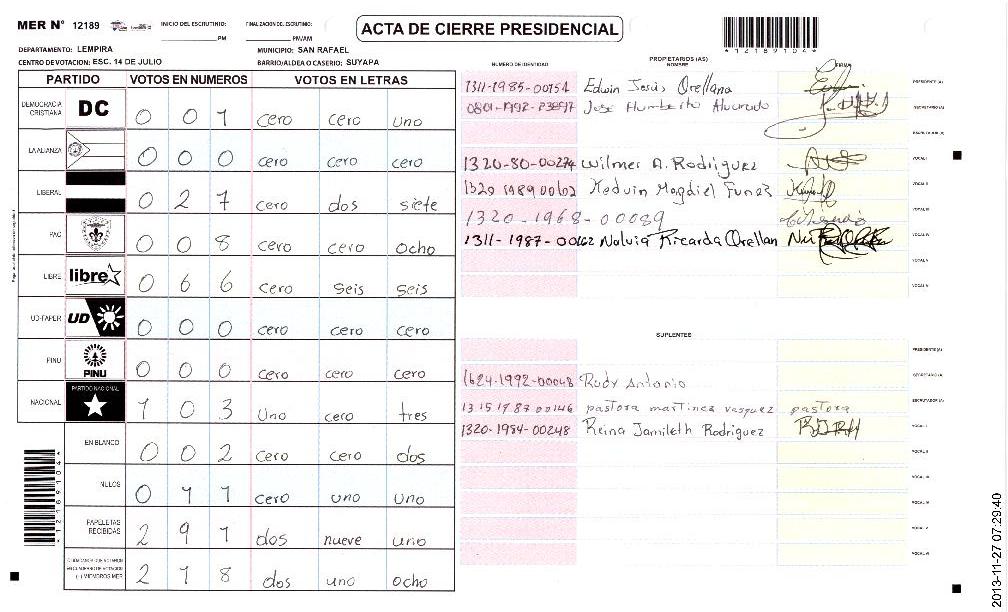 MER N° 12189
INICIO DEL ESCRUTINIO: PM
FINALIZACION DEL ESCRUTINIO: PM/AM
ACTA DE CIERRE PRESIDENCIAL
*12189104*
DEPARTAMENTO: LEMPIRA
MUNICIPIO: SAN RAFAEL
CENTRO DE VOTACION: ESC. 14 DE JULIO
BARRIO/ALDEA O CASERIO: SUYAPA
PARTIDO VOTOS EN NUMEROS VOTOS EN LETRAS
DEMOCRACIA CRISTIANA DC 0 0 1 cero cero uno
LA ALIANZA 0 0 0 cero cero cero
LIBERAL 0 2 7 cero dos siete
PAC 0 0 8 cero cero ocho
LIBRE libre 0 6 6 cero seis seis
UD-FAPER UD 0 0 0 cero cero cero
PINU PINU 0 0 0 cero cero cero
NACIONAL PARTIDO NACIONAL 1 0 3 uno cero tres
EN BLANCO 0 0 2 cero cero dos
NULOS 0 1 1 cero uno uno
PAPELETAS RECIBIDAS 2 9 1 dos nueve uno
(-) MIEMBROS MER 2 1 8 dos uno ocho
*12189104*
NUMERO DE IDENTIDAD
PROPIETARIOS (AS)
NOMBRE
FIRMA
1311-1985-00154 Edwin Jesús Orellana PRESIDENTE (A)
Jose Humberto Alvarado SECRETARIO (A)
ESCRUTADOR (A)
1320-80-00274 Wilmer A. Rodriguez VOCAL I
1320 1989 00102 Kedvin Magdiel Funez VOCAL II
1320-1968-00089 VOCAL III
1311-1987-00162 Nolvia Ricarda Orellan VOCAL IV
VOCAL V
VOCAL VI
SUPLENTES
PRESIDENTE (A)
1624-1992-00048 Rudy Antonio SECRETARIO (A)
1315 1987 00146 pastora martinez vasquez pastora ESCRUTADOR (A)
1320-1984-00248 Reina Jamileth Rodriguez VOCAL I
VOCAL II
VOCAL III
VOCAL IV
VOCAL V
VOCAL VI
2013-11-27 07:29:40